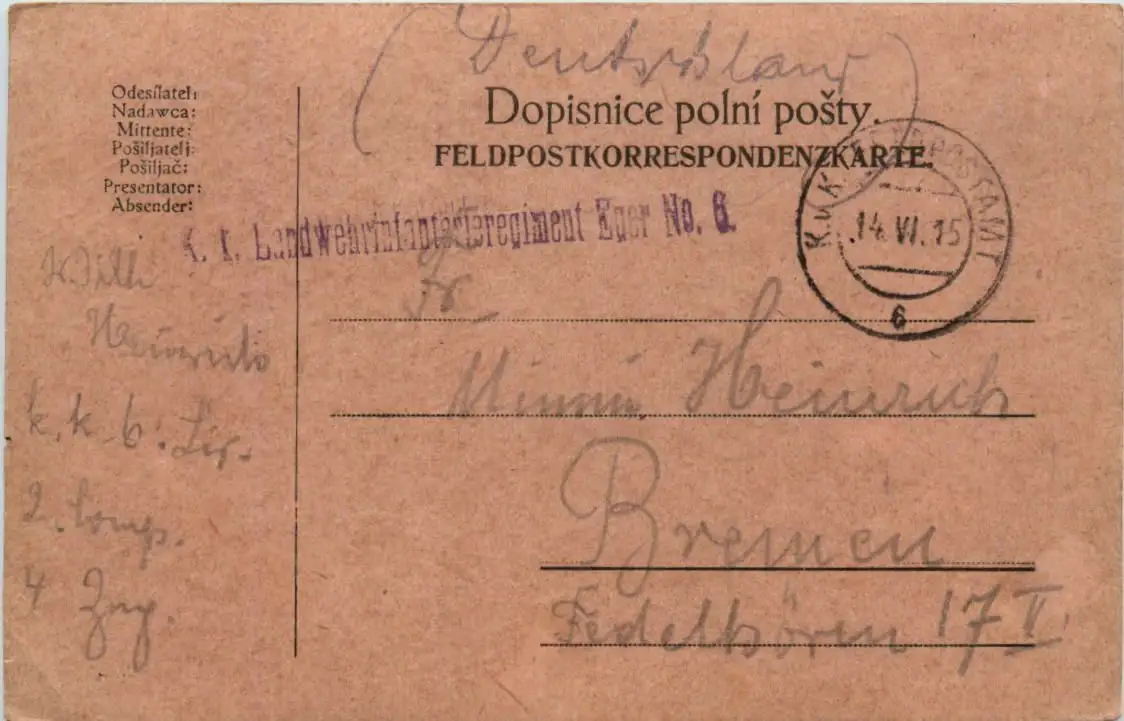 (Deutschland)
Dopisnice polní pošty.
FELDPOSTKORRESPONDENZKARTE.
Odesílatel:
Nadawca:
Mittente:
Pošiljatelj:
Pošiljač:
Presentator:
Absender:
K. k. Landwehrinfanterieregiment Eger No. 6.
K.u.K. FELDPOSTAMT
14.VI.15
6
Fr.
Minni Heinrich
Bremen
Fedelhören 17 II.
Heinrich
k. k. 6.
2. Comp.
4 Zug.